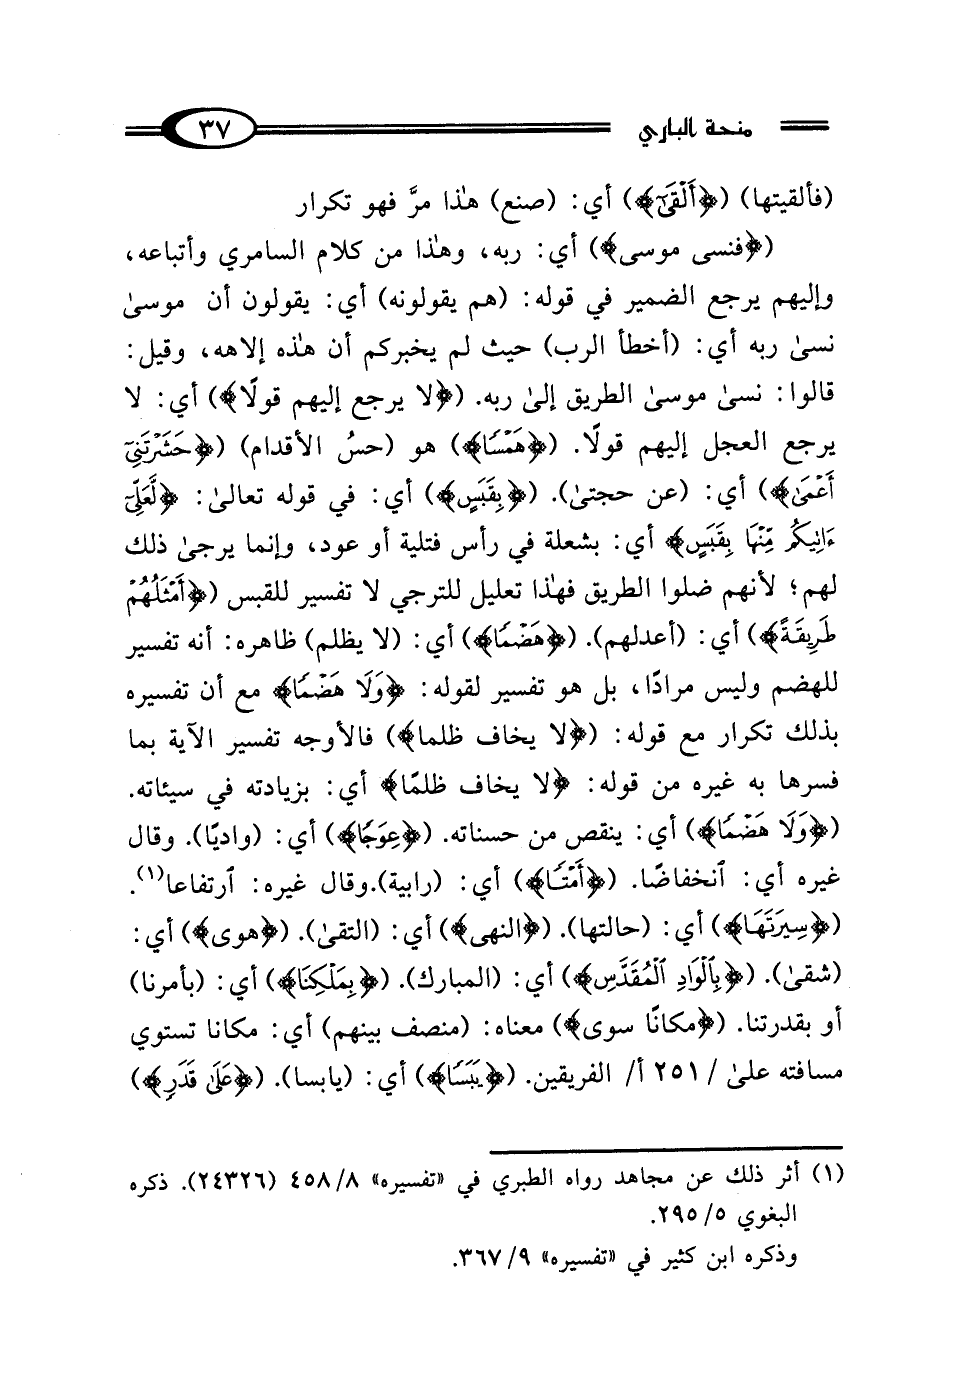 منحة الباري ٣٧
(فألقيتها) (﴿أَلْقَىٓ﴾) أي: (صنع) هذا مرَّ فهو تكرار
(﴿فنسى موسى﴾) أي: ربه، وهذا من كلام السامري وأتباعه،
وإليهم يرجع الضمير في قوله: (هم يقولونه) أي: يقولون أن موسىٰ
نسىٰ ربه أي: (أخطأ الرب) حيث لم يخبركم أن هذه إلاهه، وقيل:
قالوا: نسىٰ موسىٰ الطريق إلىٰ ربه. (﴿لا يرجع إليهم قولًا﴾) أي: لا
يرجع العجل إليهم قولًا. (﴿هَمْسًا﴾) هو (حسُ الأقدام) (﴿حَشَرْتَنِىٓ
أَعْمَىٰ﴾) أي: (عن حجتىٰ). (﴿بِقَبَسٍ﴾) أي: في قوله تعالىٰ: ﴿لَّعَلِّىٓ
ءَاتِيكُم مِّنْهَا بِقَبَسٍ﴾ أي: بشعلة في رأس فتلية أو عود، وإنما يرجىٰ ذلك
لهم؛ لأنهم ضلوا الطريق فهذا تعليل للترجي لا تفسير للقبس (﴿أَمْثَلُهُمْ
طَرِيقَةً﴾) أي: (أعدلهم). (﴿هَضْمًا﴾) أي: (لا يظلم) ظاهره: أنه تفسير
للهضم وليس مرادًا، بل هو تفسير لقوله: ﴿وَلَا هَضْمًا﴾ مع أن تفسيره
بذلك تكرار مع قوله: (﴿لا يخاف ظلما﴾) فالأوجه تفسير الآية بما
فسرها به غيره من قوله: ﴿لا يخاف ظلمًا﴾ أي: بزيادته في سيئاته.
(﴿وَلَا هَضْمًا﴾) أي: ينقص من حسناته. (﴿عِوَجًا﴾) أي: (واديًا). وقال
غيره أي: ٱنخفاضًا. (﴿أَمْتًا﴾) أي: (رابية).وقال غيره: ٱرتفاعا(١).
(﴿سِيرَتَهَا﴾) أي: (حالتها). (﴿النهى﴾) أي: (التقىٰ). (﴿هوى﴾) أي:
(شقىٰ). (﴿بِالْوَادِ الْمُقَدَّسِ﴾) أي: (المبارك). (﴿بِمَلْكِنَا﴾) أي: (بأمرنا)
أو بقدرتنا. (﴿مكانًا سوى﴾) معناه: (منصف بينهم) أي: مكانا تستوي
مسافته علىٰ / ٢٥١ أ/ الفريقين. (﴿يَبَسًا﴾) أي: (يابسا). (﴿عَلَىٰ قَدَرٍ﴾)
(١) أثر ذلك عن مجاهد رواه الطبري في «تفسيره» ٨/ ٤٥٨ (٢٤٣٢٦). ذكره
البغوي ٥/ ٢٩٥.
وذكره ابن كثير في «تفسيره» ٩/ ٣٦٧.